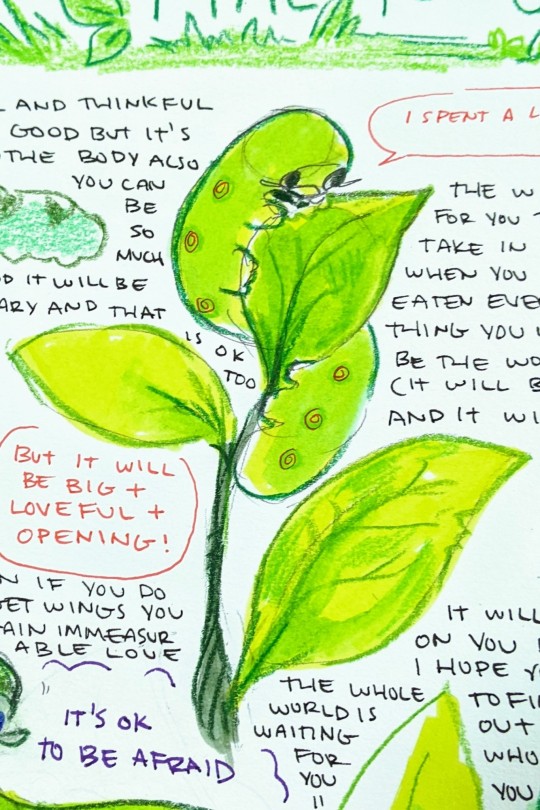 AND THINKFUL
GOOD BUT IT'S
THE BODY ALSO
YOU CAN
BE
SO
MUCH
IT WILL BE
AND THAT
IS OK
TOO
BUT IT WILL
BE BIG +
LOVEFUL +
OPENING!
IF YOU DO
WINGS YOU
IMMEASUR
ABLE LOVE
IT'S OK
TO BE AFRAID
I SPENT A
THE
FOR YOU
TAKE IN
WHEN YOU
EATEN
THING YOU
BE THE
(IT WILL
AND IT
THE WHOLE
WORLD IS
WAITING
FOR
YOU
!!
IT WILL
ON YOU
I HOPE
TO
OUT
YOU